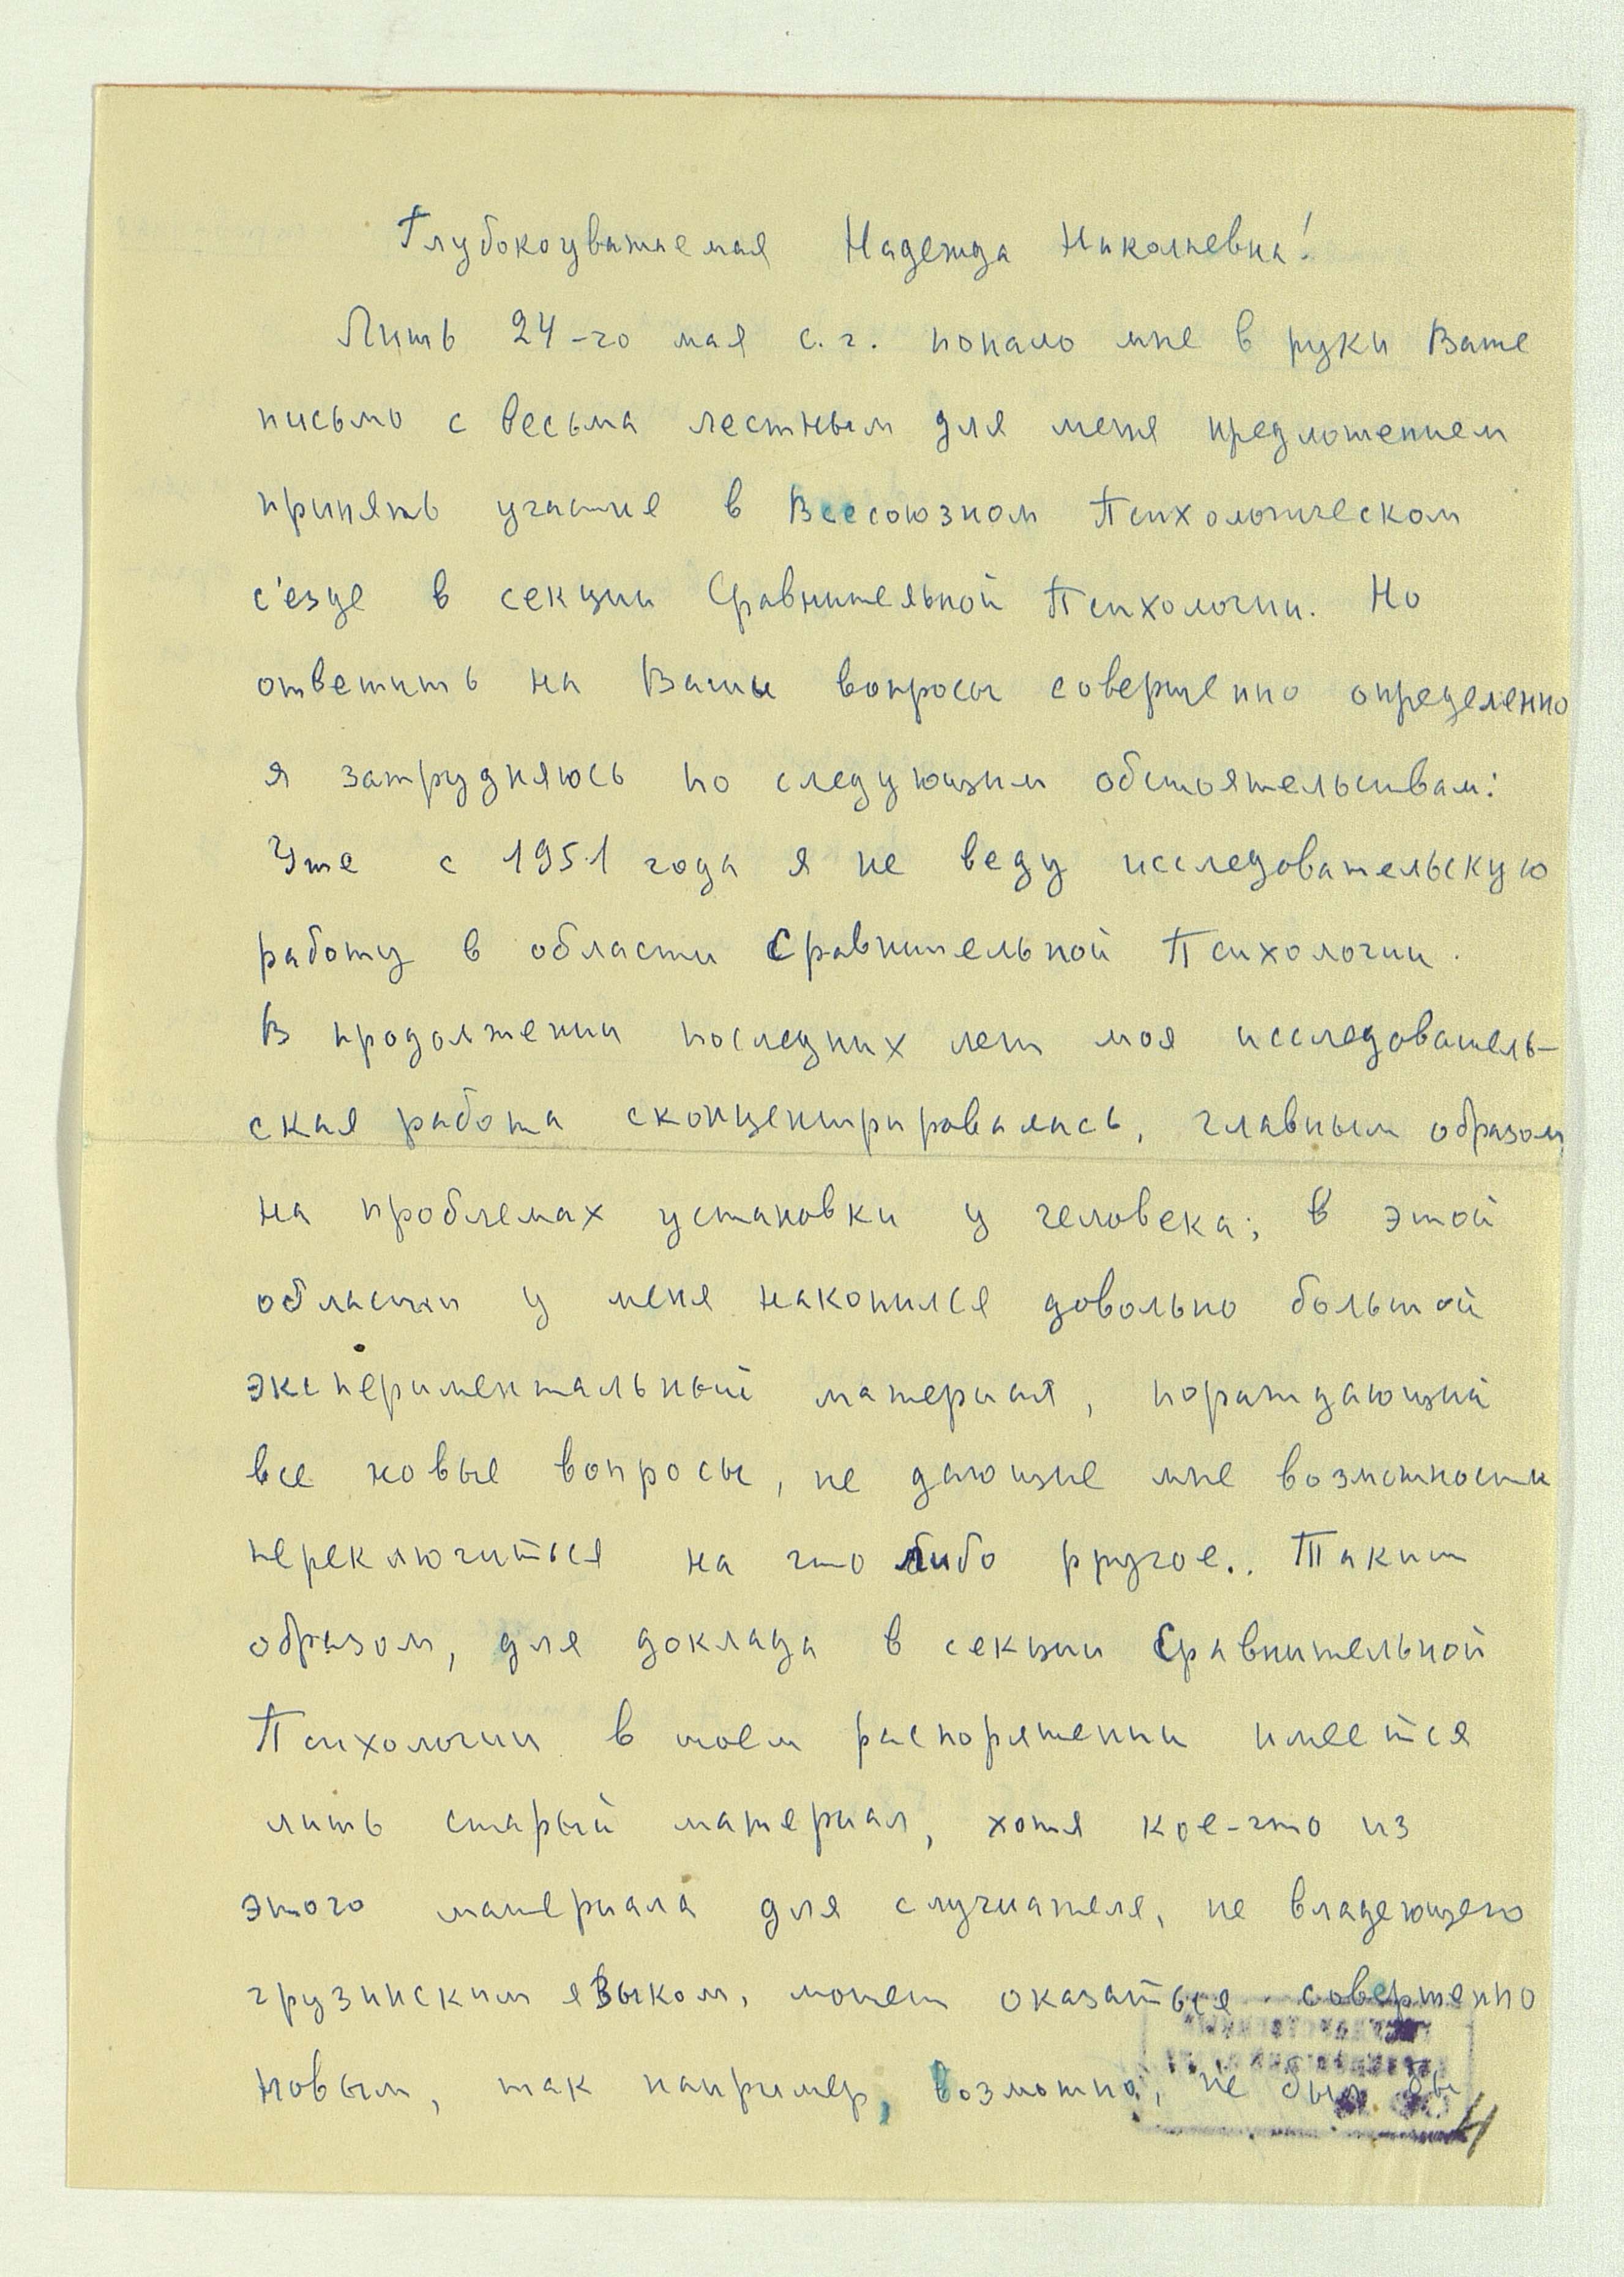 Глубокоуважаемая Надежда Николаевна!
Лишь 24-го мая с.г. попало мне в руки Ваше
письмо с весьма лестным для меня предложением
принять участие в Всесоюзном Психологическом
с'езде в секции Сравнительной Психологии. Но
ответить на Ваши вопросы совершенно определенно
я затрудняюсь по следующим обстоятельствам:
Уже с 1951 года я не веду исследовательскую
работу в области Сравнительной Психологии.
В продолжении последних лет моя исследователь-
ская работа сконцентрировалась, главным образом,
на проблемах установки у человека; в этой
области у меня накопился довольно большой
экспериментальный материал, пораждающий
все новые вопросы, не дающие мне возможности
переключиться на что либо другое.. Таким
образом, для доклада в секции Сравнительной
Психологии в моем распоряжении имеется
лишь старый материал, хотя кое-что из
этого материала для слушателя, не владеющего
грузинским языком, может оказаться совершенно
новым, так например, возможно, не был бы
4